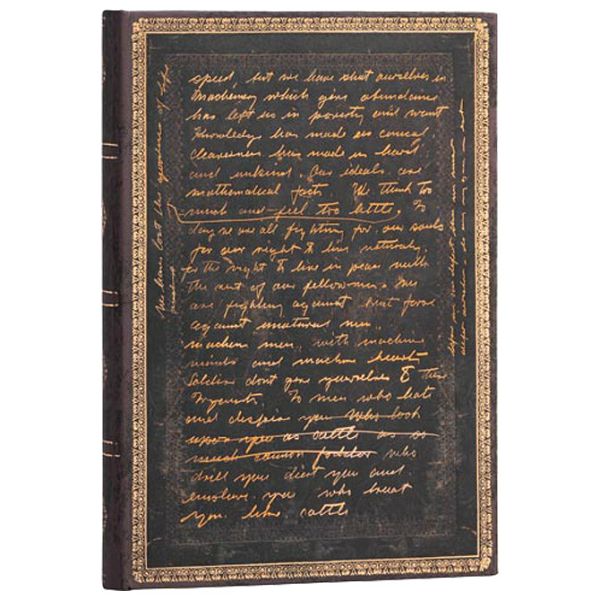 speed, but we have shut ourselves in
Machinery which gives abundance
has left us in poverty and want
Knowledge has made us cynical
Cleverness has made us hard
and unkind. Our ideals are
mathematical facts. We think too
much and feel too little. To
day we are all fighting for our souls
for our right to live naturally,
for the right to live in peace with
the rest of our fellowmen. We
are fighting against that force
against unatural men,
machine men, with machine
minds and machine hearts
Soldiers dont give yourselves to these
To men who hate
and despise you who look
upon you as cattle as
cannon fodder who
drill you diet you and
enslave you who treat
you like cattle
We have lost the